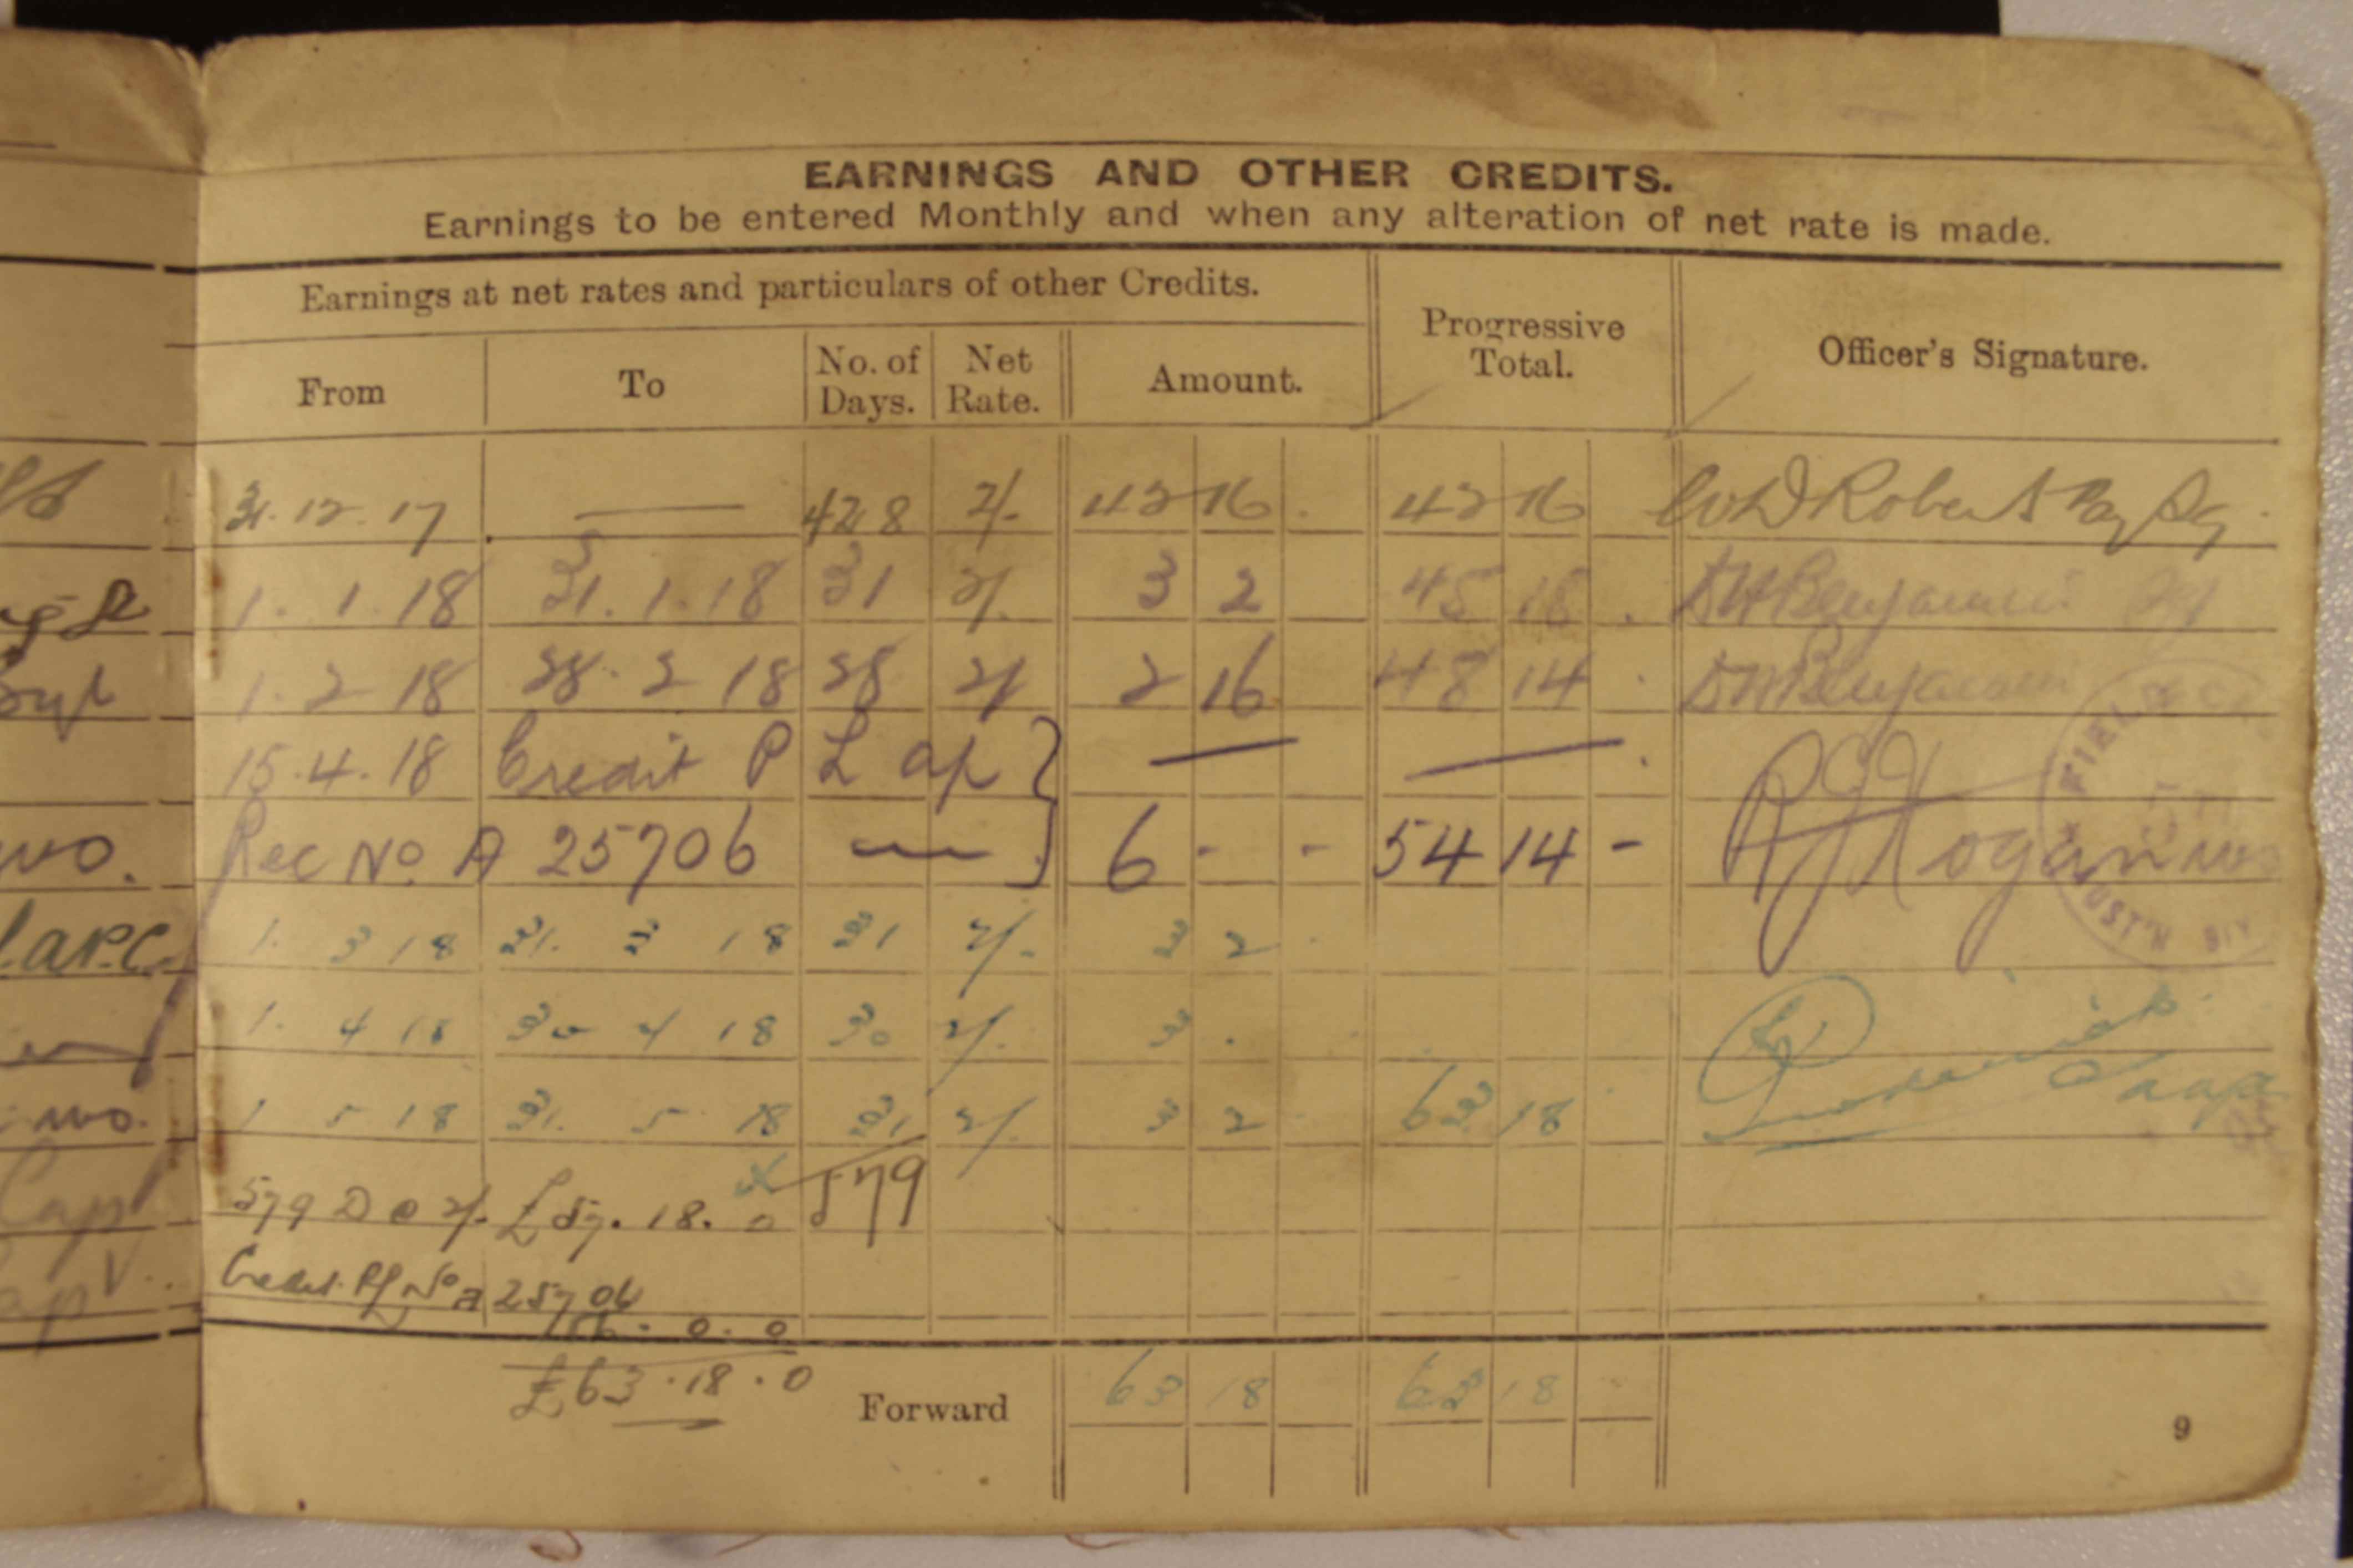 EARNINGS AND OTHER CREDITS.
Earnings to be entered Monthly and when any alteration of net rate is made.
Earnings at net rates and particulars of other Credits.
Progressive Total.
Officer's Signature.
From To No. of Days. Net Rate. Amount.
31.12.17 — 428 2/- 42 16 . 42 16 W D Roberts Pay Sg
1.1.18 31.1.18 31 2/. 3 2 45 18 . Benjamin
1.2 18 28.2 18 28 2/ 2 16 48 14 . Benjamin
15.4.18 Credit P L ap } — — .
Rec No. A 25706 — 6 - - 54 14 - Hogan
1. 3 18 31. 3 18 31 2/- 3 2 .
1. 4 18 30 4 18 30 2/. 3 .
1 5 18 31. 5 18 31 2/. 3 2 63 18
Capt
579
579 D @ 2/- £57.18.0
Credit No a 25706
6.0.0
£63.18.0
Forward 63 18 63 18
9
wo.
wo.
Cap
FIEL
UST'N DIV